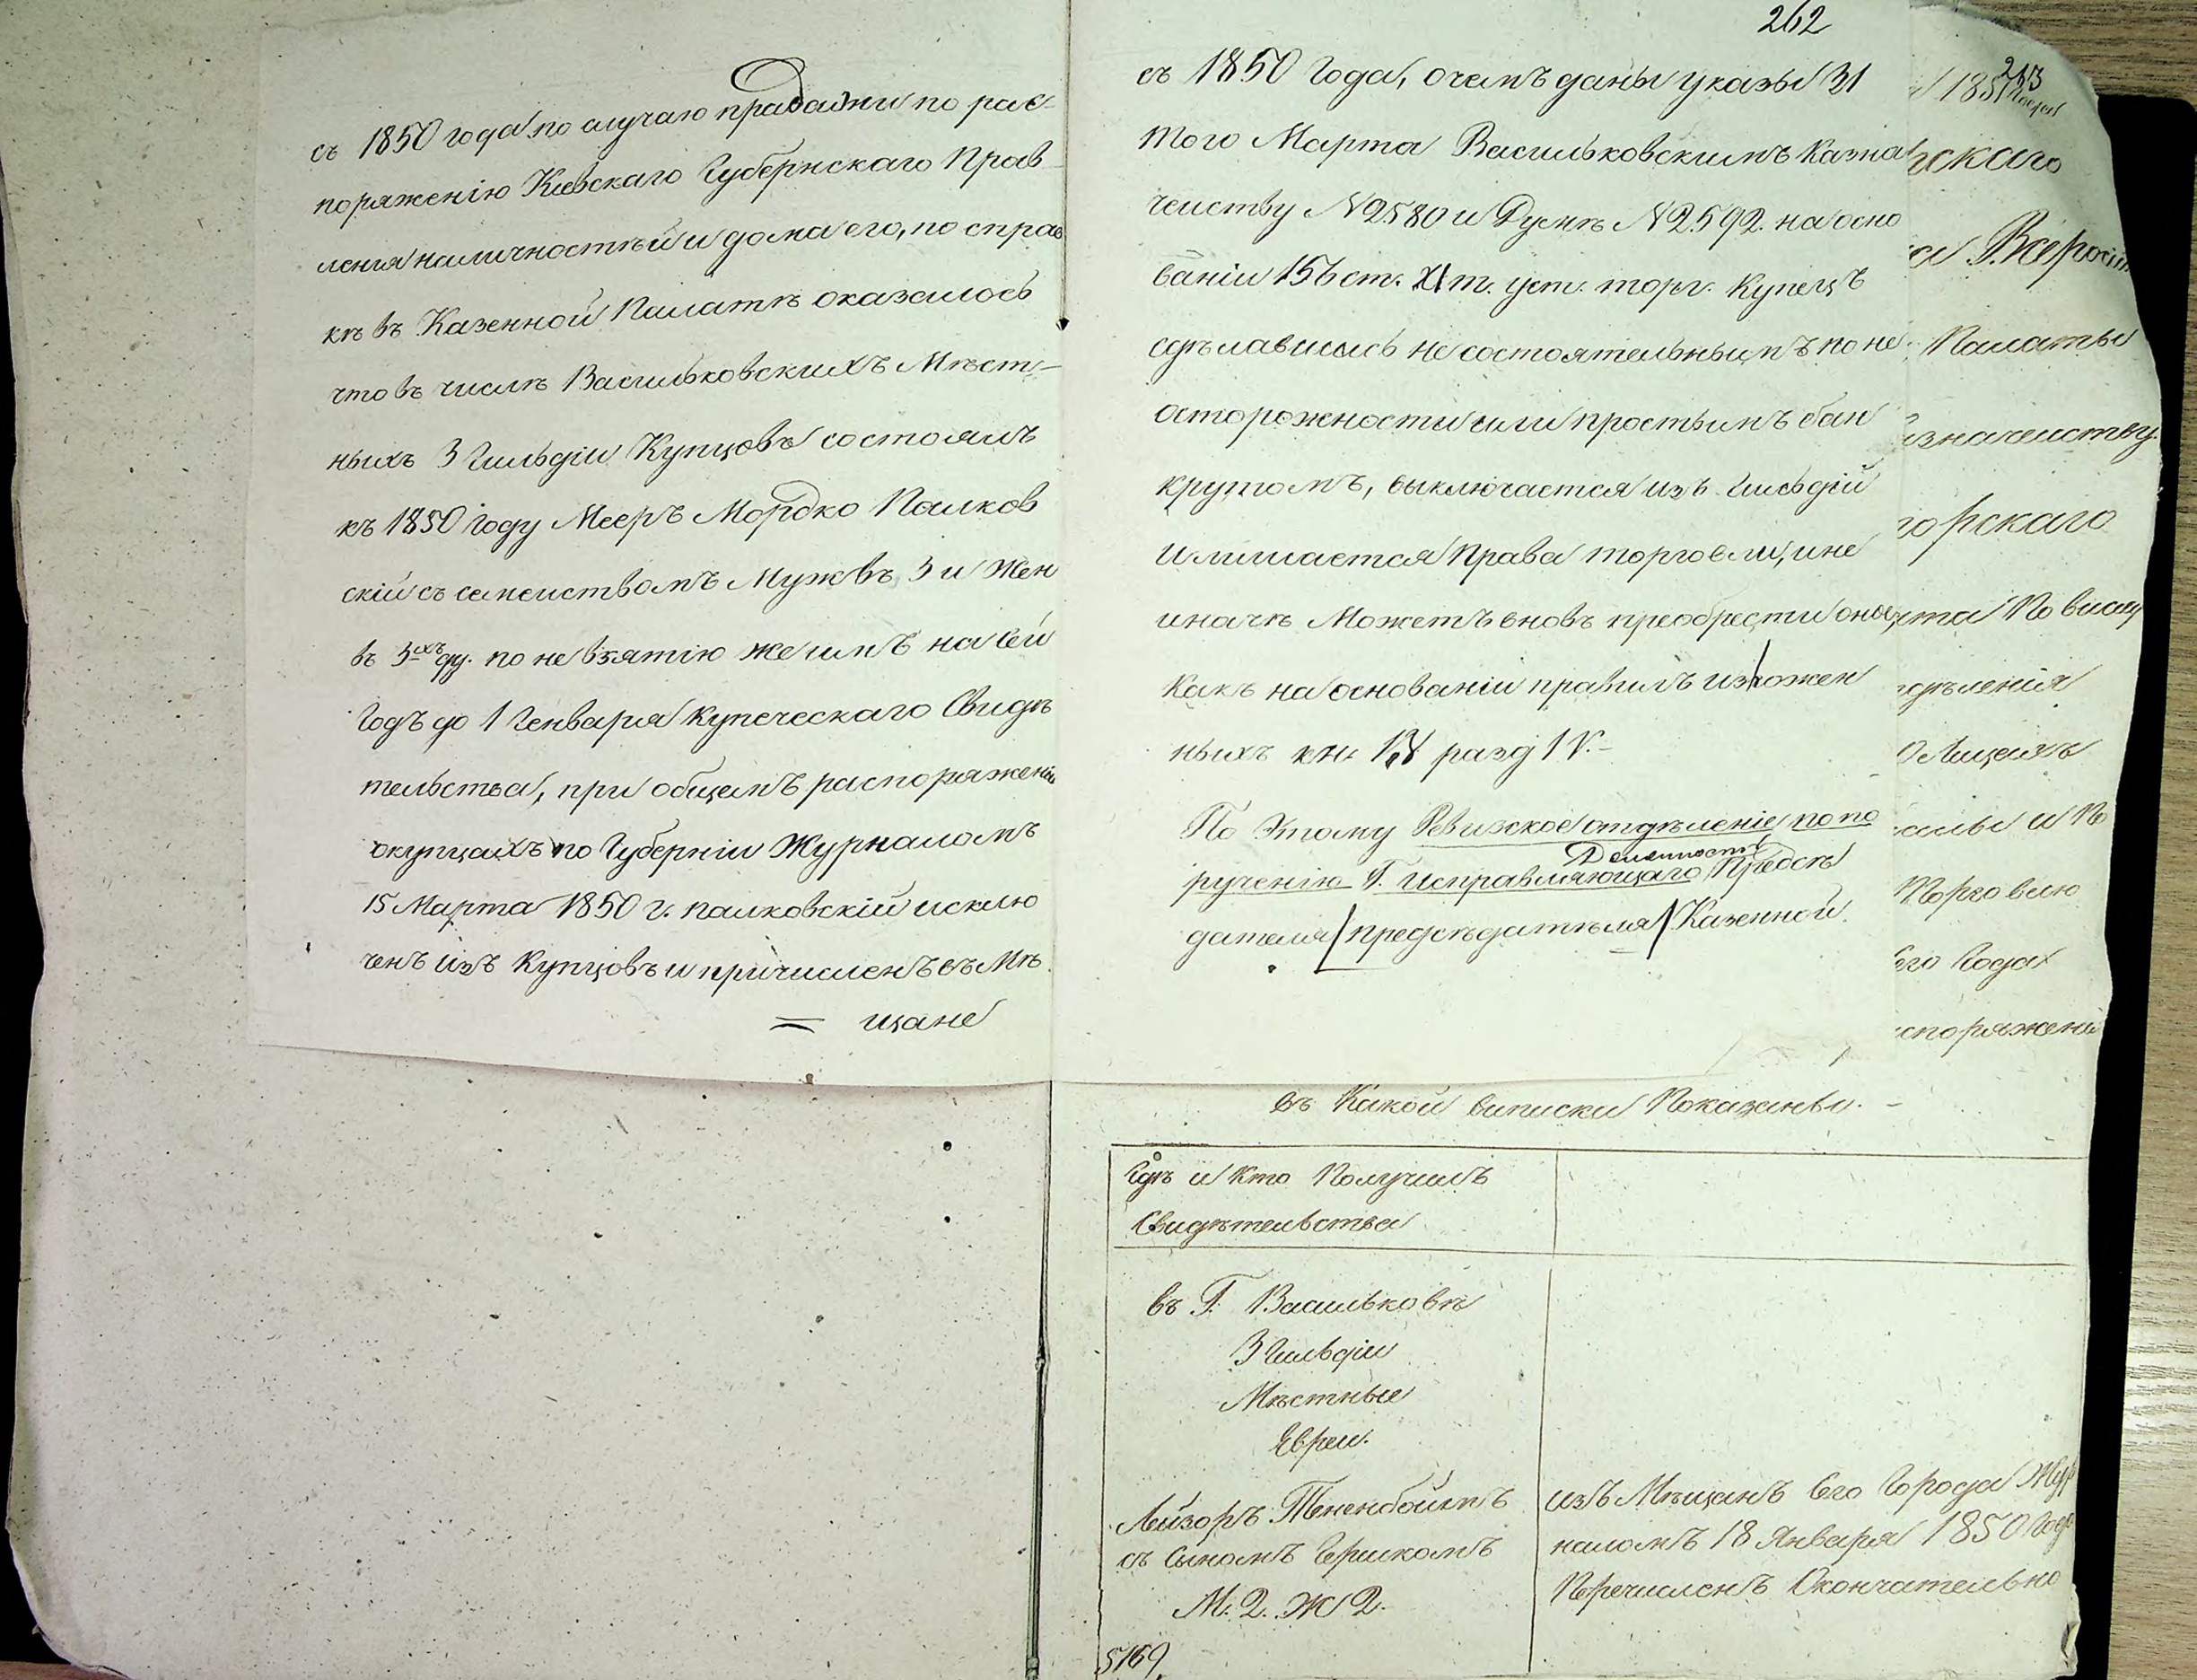 съ 1850 года по случаю продажи по рас-
поряженію Кіевскаго Губернскаго Прав
ленія наличностей и дома его, по справ
кѣ въ Казенной Палатѣ оказалось
что въ числѣ Васильковскихъ Мѣст-
ныхъ 3 Гильдіи Купцовъ состоялъ
къ 1850 году Мееръ Мордко Палков
скій съ семействомъ Муж въ 3 и Жен
въ 3хъ ду. по не взятію же имъ на сей
Годъ до 1 Генваря Купеческаго Свидѣ
тельства, при общемъ распоряженіи
о купцахъ по Губерніи Журналомъ
15 Марта 1850 г. палковскій исклю
ченъ изъ Купцовъ и причисленъ въ Мѣ
= щане
262
съ 1850 года, о чемъ даны указы 31
того Марта Васильковскимъ Казна
чейству N 2580 и Думѣ N 2592. на осно
ваніи 156 ст. XI т. уст. торг. Купецъ
сдѣлавшись не состоятельнымъ по не
осторожности или простымъ бан
крутомъ, выключается изъ Гильдій
и лишается Права торговли, и не
иначе Можетъ вновь преобрести оное
какъ на основаніи правилъ изложен
ныхъ кн. разд IV.-
По Этому Ревизское отдѣленіе по по
Должность
рученію Г. Исправляющаго Предсѣ
дателя /предсѣдателя/ Казенной
213
1851
скаго
Палаты
азначейству
горскаго
та По
дѣленія
О Лицахъ
и По
Торговлю
его Года
споряженіи
въ Какой выписки Показаны.-
Гдѣ и Кто Получилъ
Свидѣтельства
въ Г. Васильковѣ
3 Гильдіи
Мѣстные
Евреи.
Лейзоръ Тененбоймъ
съ Сыномъ Гершкомъ
М. 2. Ж 2.
изъ Мѣщанъ Сего Города Жур
наломъ 18 Января 1850 Года
Перечисленъ Окончательно
5169